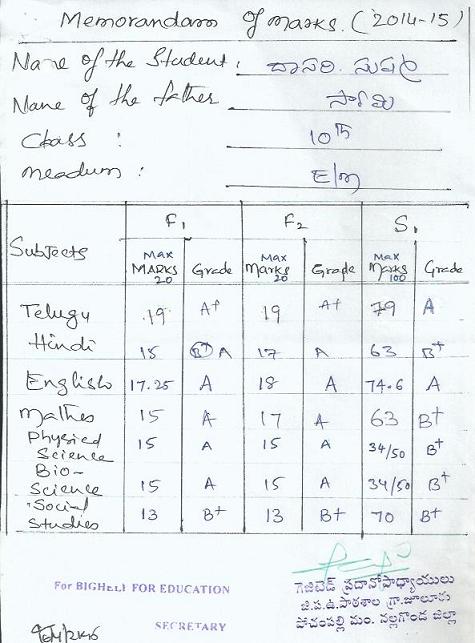 Memorandam of marks. (2014-15)
Name of the Student : దాసరి. సుష్మ
Name of the father సామి
Class : 10th
meadum : E/m
Subjects F1 F2 S1
Max MARKS 20 Grade Max Marks 20 Grade Max Marks 100 Grade
Telugu 19 A+ 19 A+ 79 A
Hindi 15 B+ A 17 A 63 B+
English 17.25 A 18 A 74.6 A
Mathes 15 A 17 A 63 B+
Physical Science 15 A 15 A 34/50 B+
Bio-Science 15 A 15 A 34/50 B+
Social Studies 13 B+ 13 B+ 70 B+
For BIGHELP FOR EDUCATION
SECRETARY
గెజిటెడ్ ప్రధానోపాధ్యాయులు
జి.ప.ఉ.పాఠశాల గ్రా.జాలూరు
పోచంపల్లి మం. నల్లగొండ జిల్లా